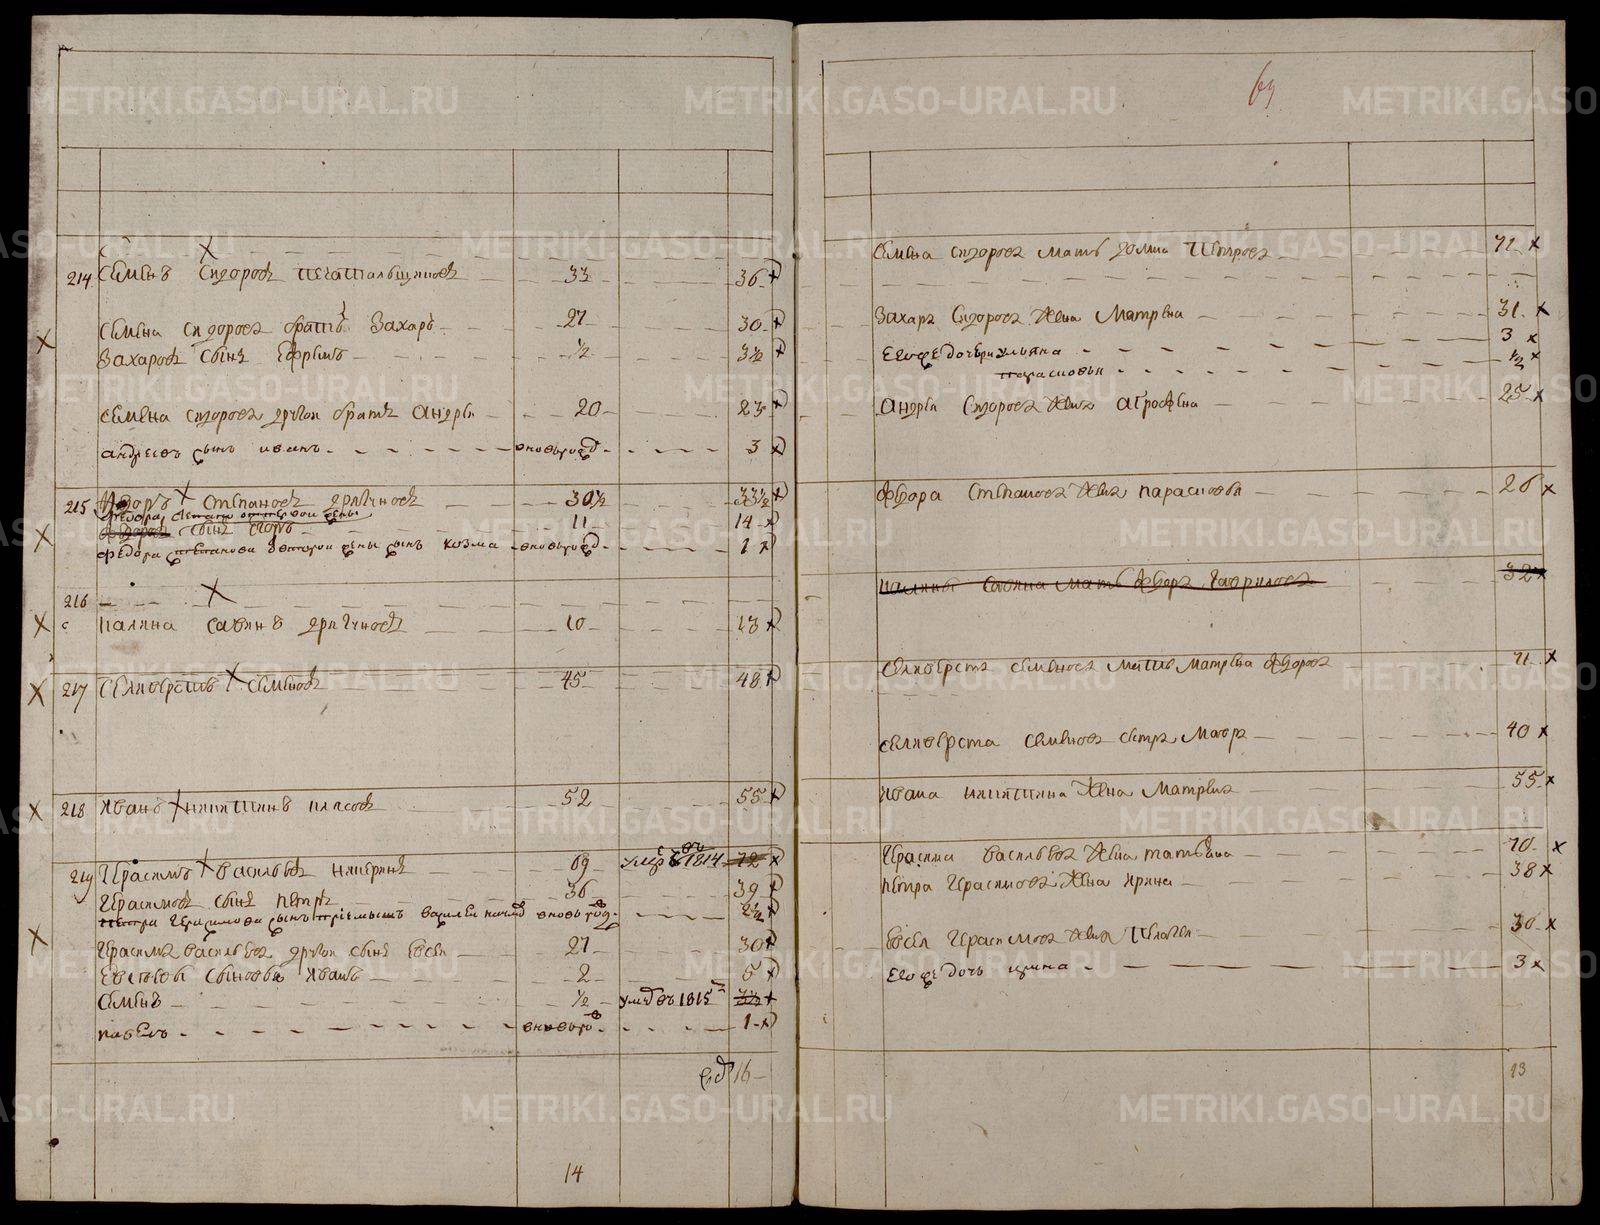 214 Семенъ Сидоровъ Печатальщиковъ 33 36
Семена Сидорова братъ Захаръ 27 30
Захаровъ сынъ Ефремъ ½ 3½
Семена Сидорова другой братъ Андрей 20 23
андреевъ сынъ иванъ вновьрожд 3
215 Федоръ Степановъ 30½ 33½
Федора Степанова от первой жены
сынъ Егоръ 11 14
Федора степанова второй жены сынъ козма вновьрожд 1
216
Савинъ 10 13
217 Селиверстъ Семеновъ 45 48
218 Иванъ Никитинъ 52 55
219 Герасимъ Васильевъ 69 умре въ 1814 72
Герасимовъ сынъ Петръ 36 39
Петра Герасимова сынъ приемышъ вновьрожд 2½
Герасима Васильева другой сынъ Евсей 27 30
Евсеевы сыновья Иванъ 2 5
Семенъ ½ умре въ 1815 3½
павелъ вновьрож 1
16
14
69
Семена Сидорова мать Домна Петрова 71
Захара Сидорова жена Матрена 31
Егоже дочери ульяна 3
парасковья ½
Андрея Сидорова жена Агрофена 25
Федора Степанова жена парасковья 26
Савина мать Гаврилова 32
Селиверста Семенова мать Матрена Федорова 71
Селиверста Семенова сестра Мавра 40
Ивана Никитина жена Матрена 55
Герасима Васильева жена Татьяна 70
Петра Герасимова жена Ирина 38
Евсея Герасимова жена Пелагея 30
Егоже дочь ирина 3
13
METRIKI.GASO-URAL.RU